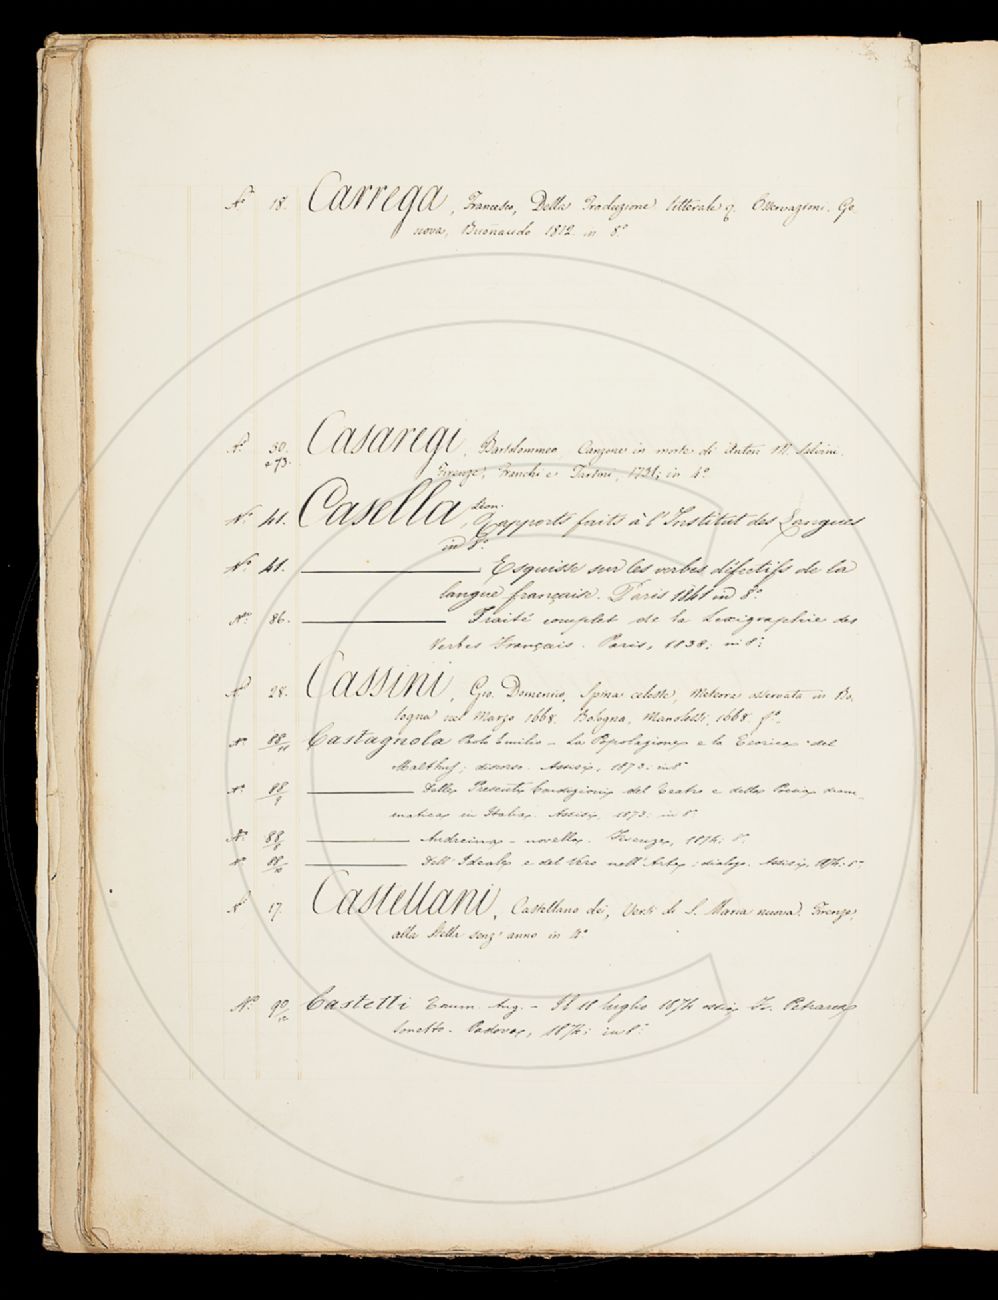 N.º 18. Carrega, Francesco, Della Traduzione litterale q. Osservazioni. Ge-
nova, Bonaudo 1812 in 8.º
N.º 30. Casaregi, Bartolommeo, Canzone in morte di Anton M. Salvini.
e 73. Firenze, Franchi e Tartini, 1731; in 4.º
N.º 41. Casella, Léon. Rapports faits à l'Institut des Langues
in 8.º
N.º 41. Esquisse sur les verbes défectifs de la
langue française. Paris 1841 in 8.º
N.º 86. Traité complet de la Lexigraphie des
Verbes Français. Paris, 1838; in 8.º
N.º 28. Cassini, Gio. Domenico, Spina celeste, Meteora osservata in Bo-
logna nel Marzo 1668. Bologna, Manolessi, 1668. f.º
N.º 88/11 Castagnola Paolo Emilio - La Popolazione e la Teorica del
Malthus; discorso. Assisi, 1873; in 8.º
N.º 88/9 Delle Presenti Condizioni del Teatro e della Poesia dram-
matica in Italia. Assisi, 1873; in 8.º
N.º 88/8 Andreina - novella. Firenze, 1874; 8.º
N.º 88/10 Dell'Ideale e del Vero nell'Arte; dialogo. Assisi, 1874; 8.º
N.º 17. Castellani, Castellano de', Versi di S. Maria nuova. Firenze,
alla Stella senz'anno in 4.º
N.º 90 Castetti Aug. - Il 18 luglio 1874 Fr. Petrarca
sonetto. Padova, 1874; in 8.º